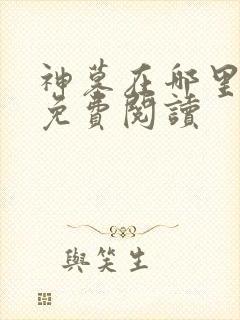 神墓在哪里
免費閱讀
與笑生